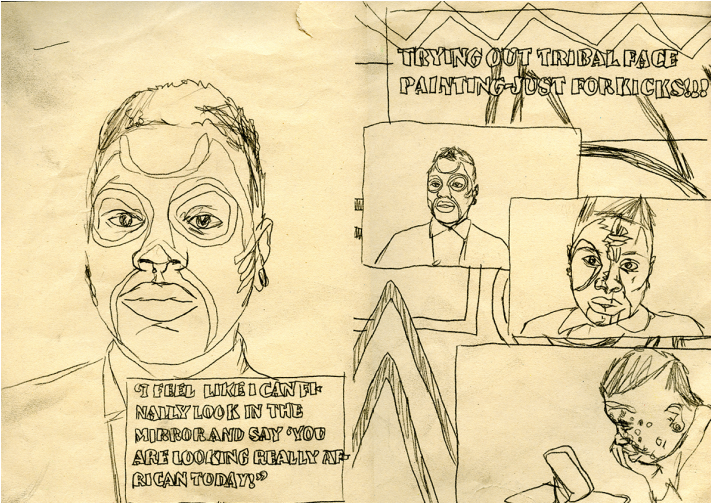 "I FEEL LIKE I CAN FI-
NALLY LOOK IN THE
MIRROR AND SAY 'YOU
ARE LOOKING REALLY AF-
RICAN TODAY!"
TRYING OUT TRIBAL FACE
PAINTING-JUST FOR KICKS!!!